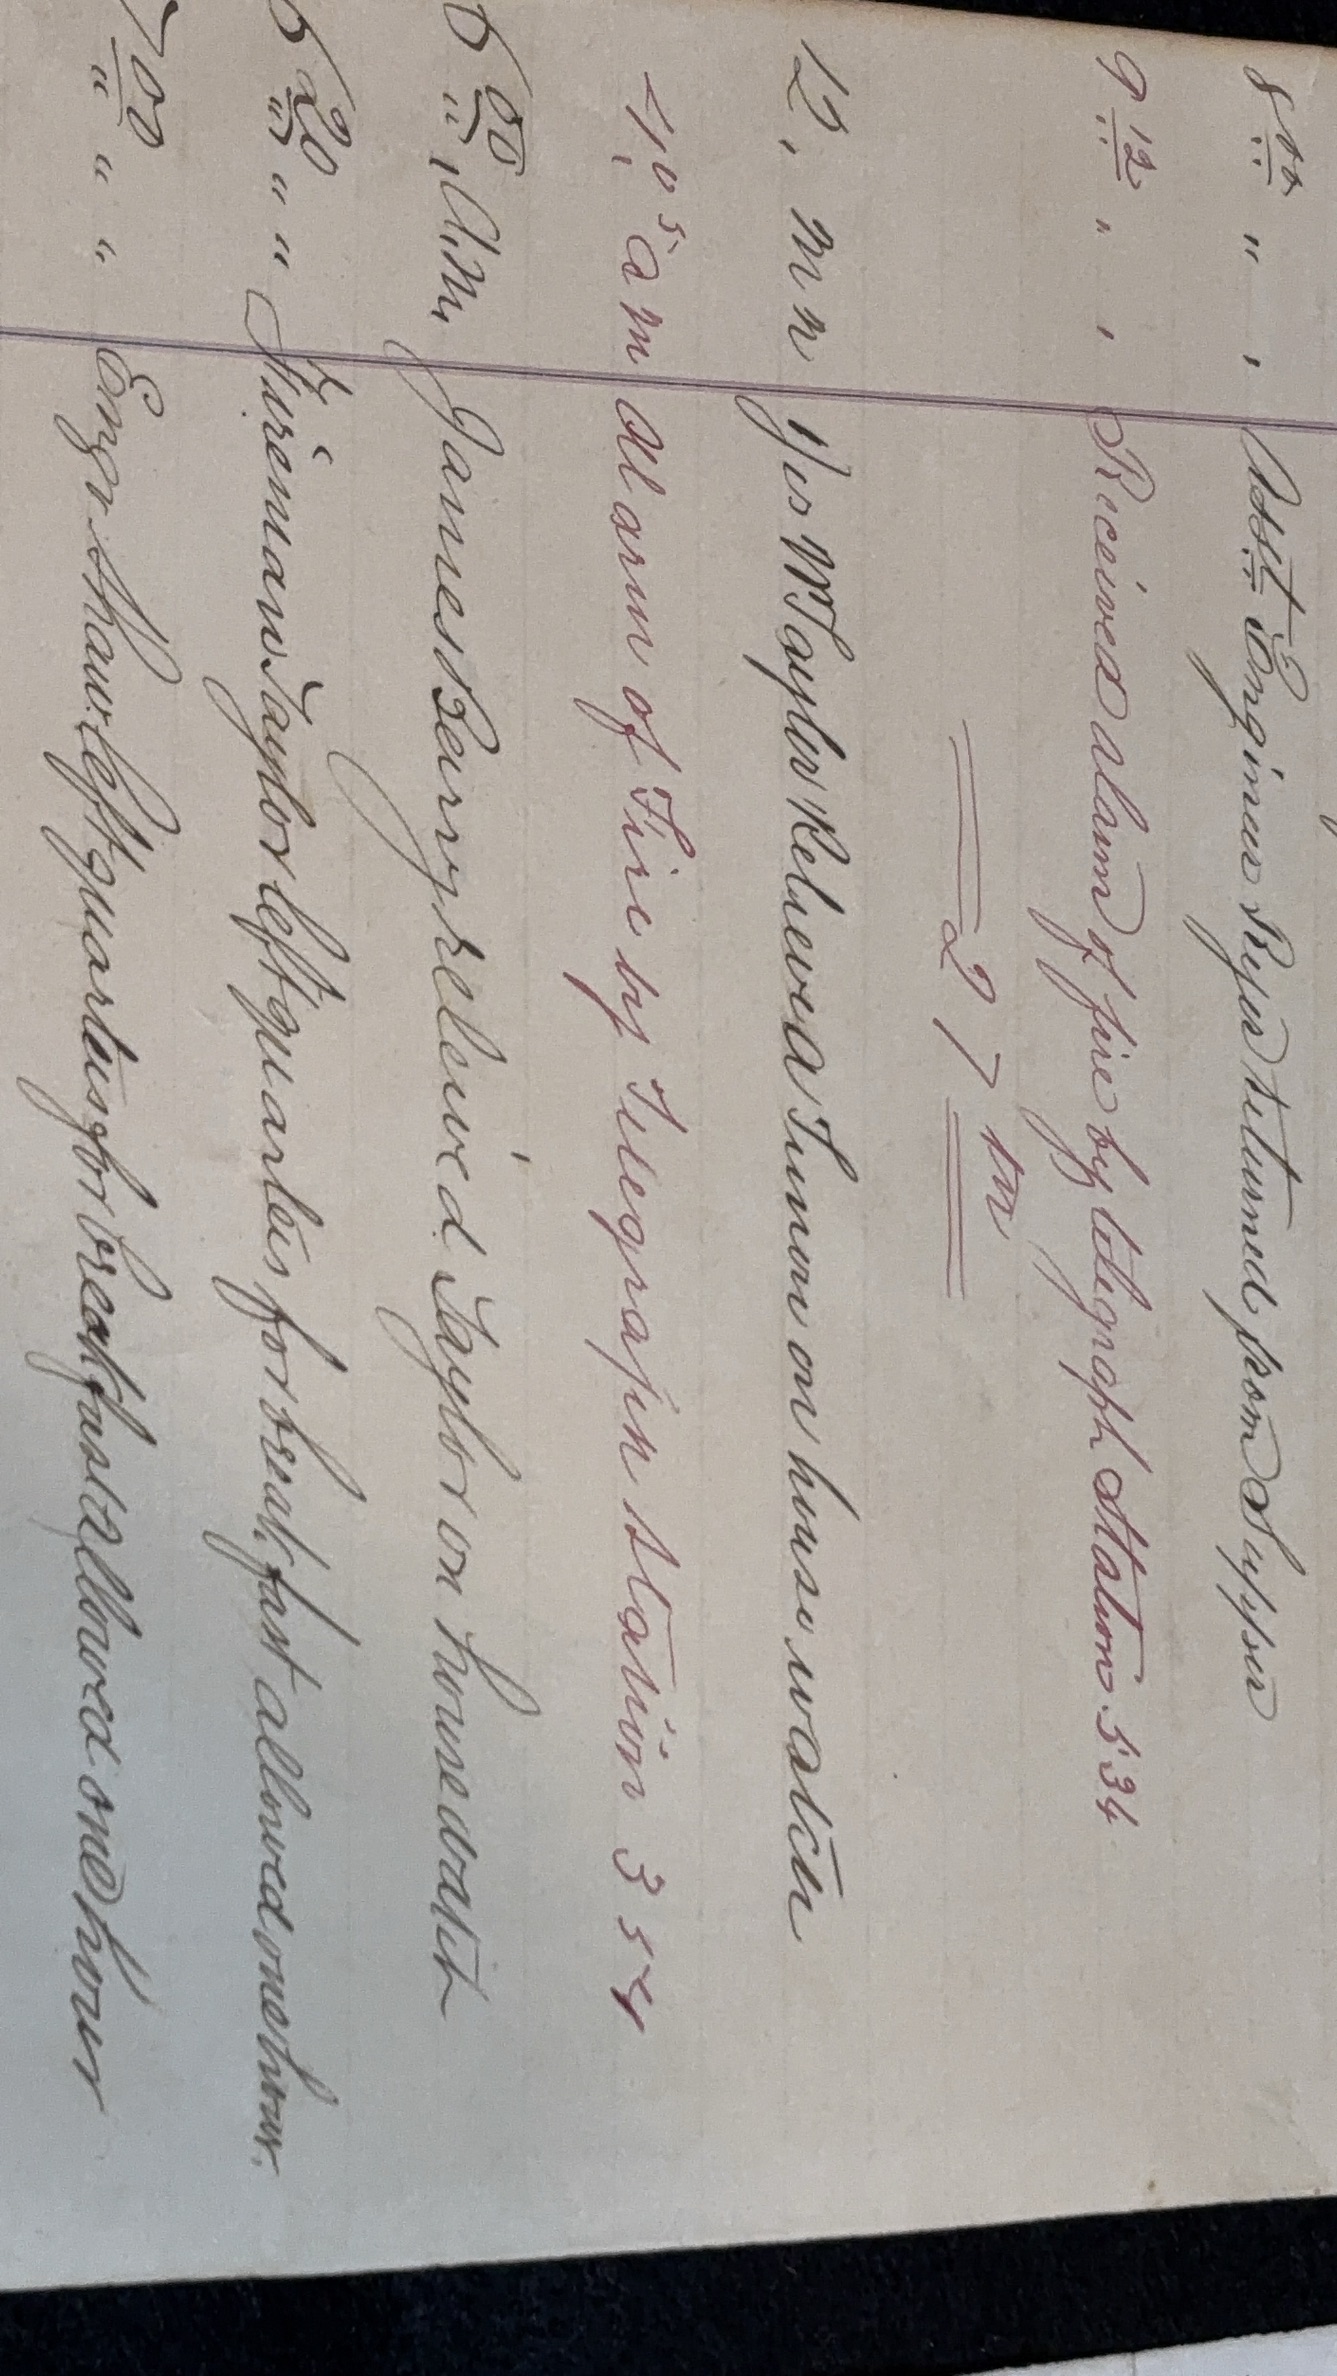 8 00 " , Asst Engineer Ryer returned from Supper
9 12 " , Received alarm of fire by telegraph Station 534
27 th
12, M N Jas W Taylor Relieved on house watch
4,05 am Alarm of Fire by Telegraph Station 354
6 00 A.M, James Berry relieved Taylor on house watch
6 20 " " Fireman Taylor left quarters for breakfast allowed one hour.
7 00 " " Engr Shaw left quarters for breakfast allowed one hour